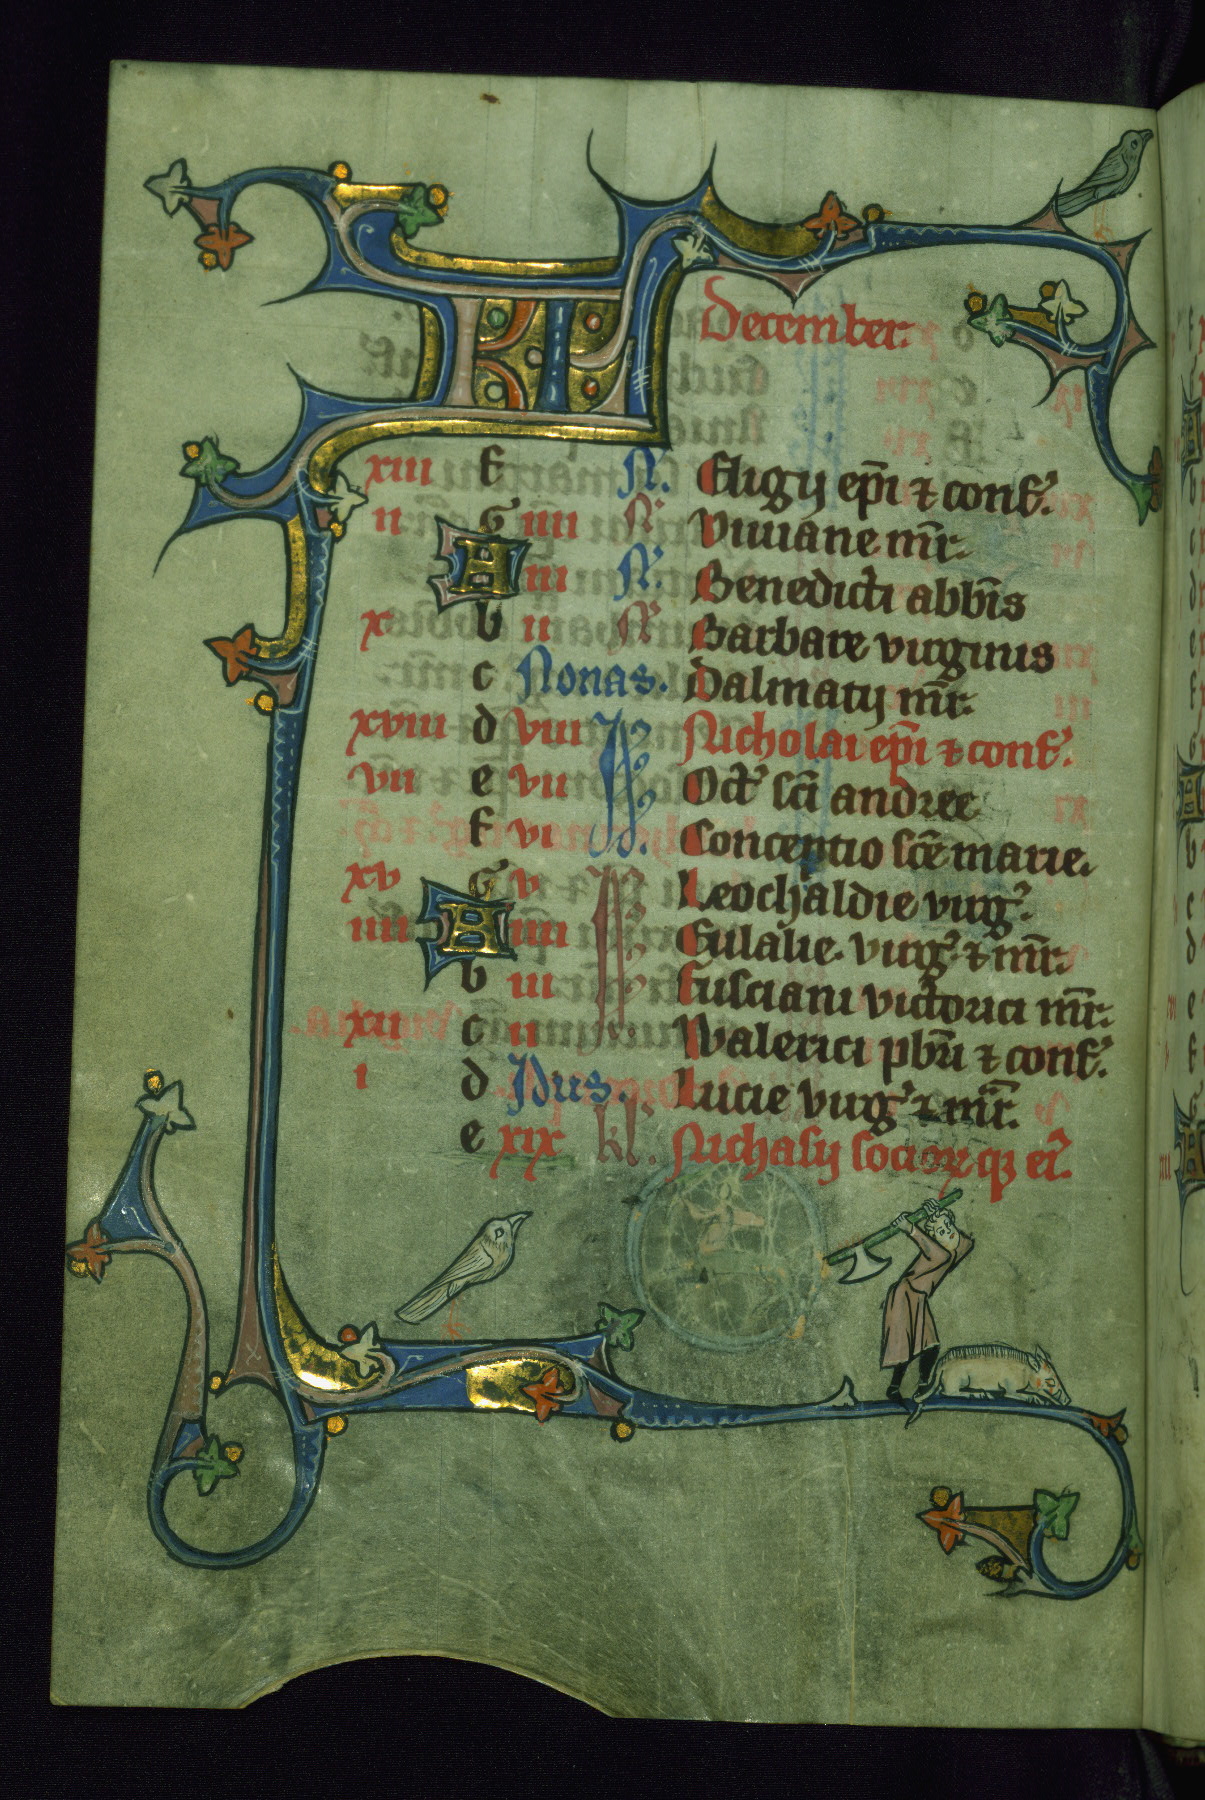 KL December.
xiii f N. Eligij ep̄i ⁊ conf.
ii G iiii N. Viuiane mr̄.
A iii N. Benedicti abb̄is
x b ii N. Barbare uirginis
c Nonas. Dalmatij mr̄.
xviii d viii Id. Nicholai ep̄i ⁊ conf.
vii e vii Oct' sc̄i andree
f vi Conceptio sc̄e marie.
xv G v Leochaldie uirg'.
iiii A iiii Eulalie. uirg' ⁊ mr̄.
b iii Fusciani uictorici mr̄.
xii c ii Walerici pb̄ri ⁊ conf.
i d Idus. Lucie uirg' ⁊ mr̄.
e xix kl. Nichasij socioꝝ qꝫ ei'.